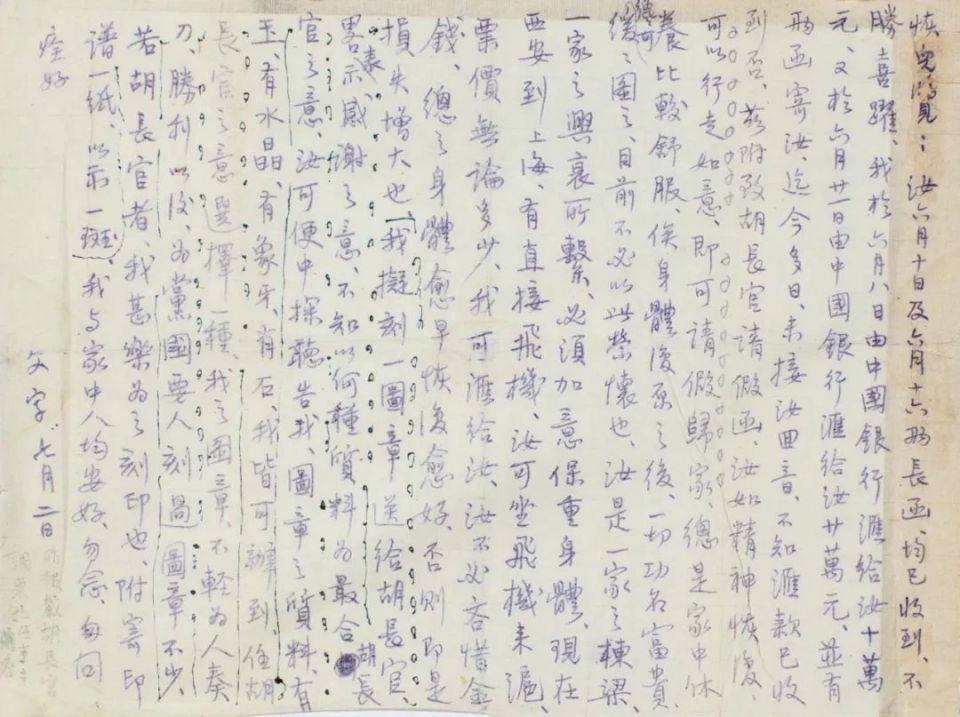 恢兒覽：汝六月十日及六月十六兩長函、均已收到、不
勝喜躍、我於六月八日由中國銀行滙給汝十萬
元、又於六月廿一日由中國銀行滙給汝廿萬元、並有
兩函寄汝、迄今多日、未接汝囬音、不知滙款已收
到否、茲附致胡長官請假函、汝如精神恢復、
可以行走如意、即可請假歸家、總是家中休
養比較舒服、俟身體復原之後、一切功名富貴、
緩緩圖之、目前不必以此縈懷也、汝是一家之棟梁、
一家之興衰所繫、必須加意保重身體、現在
西安到上海、有直接飛機、汝可坐飛機來滬、
票價無論多少、我可滙給汝、汝不必吝惜金
錢、總之身體愈早恢復愈好、否則即是
損失增大也、我擬刻一圖章送給胡長官、
畧表示感謝之意、不知以何種質料為最合胡長
官之意、汝可便中探聽告我、圖章之質料、有
玉、有水晶、有象牙、有石、我皆可辦到、任胡
長官之意選擇一種、我之圖章、不輕為人奏
刀、勝利以後、為黨國要人刻過圖章不少、
若胡長官者、我甚樂為之刻印也、附寄印
譜一紙、以示一斑、我与家中人均安好、勿念、匆問
痊好
父字 七月二日